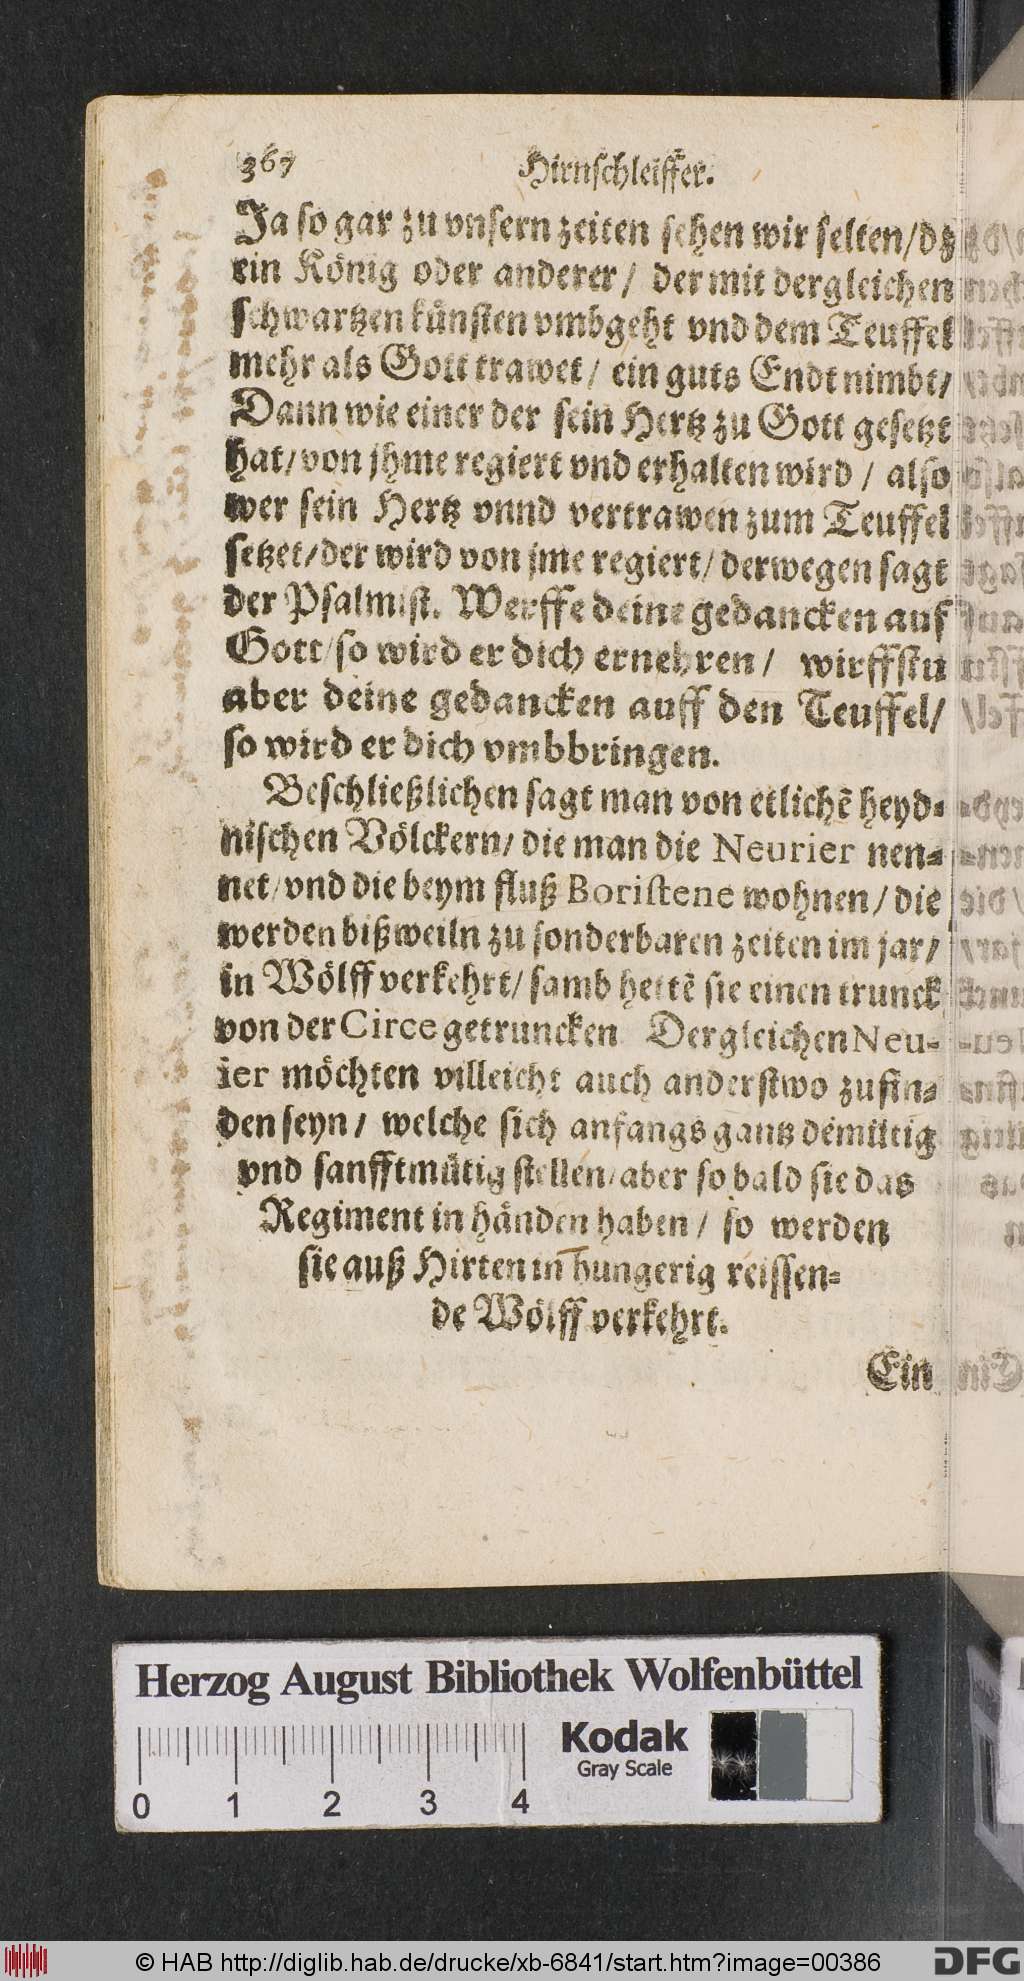 367 Hirnschleiffer.
Ja so gar zu vnsern zeiten sehen wir selten/dz
ein König oder anderer/ der mit dergleichen
schwartzen künsten vmbgeht vnd dem Teuffel
mehr als Gott trawet/ ein guts Endt nimbt/
Dann wie einer der sein Hertz zu Gott gesetzt
hat/von jhme regiert vnd erhalten wird/ also
wer sein Hertz vnnd vertrawen zum Teuffel
setzet/der wird von jme regiert/derwegen sagt
der Psalmist. Werffe deine gedancken auf
Gott/so wird er dich ernehren/ wirffstu
aber deine gedancken auff den Teuffel/
so wird er dich vmbbringen.
Beschließlichen sagt man von etlichẽ heyd-
nischen Völckern/die man die Neurier nen-
net/vnd die beym fluß Boristene wohnen/die
werden bißweiln zu sonderbaren zeiten im jar/
in Wölff verkehrt/samb hettẽ sie einen trunck
von der Circe getruncken Dergleichen Neu-
ier möchten villeicht auch anderstwo zufin-
den seyn/ welche sich anfangs gantz demütig
vnd sanfftmütig stellen/aber so bald sie das
Regiment in händen haben/ so werden
sie auß Hirten in hungerig reissen-
de Wölff verkehrt.
Ein
Herzog August Bibliothek Wolfenbüttel
Kodak
Gray Scale
0 1 2 3 4
© HAB http://diglib.hab.de/drucke/xb-6841/start.htm?image=00386
DFG